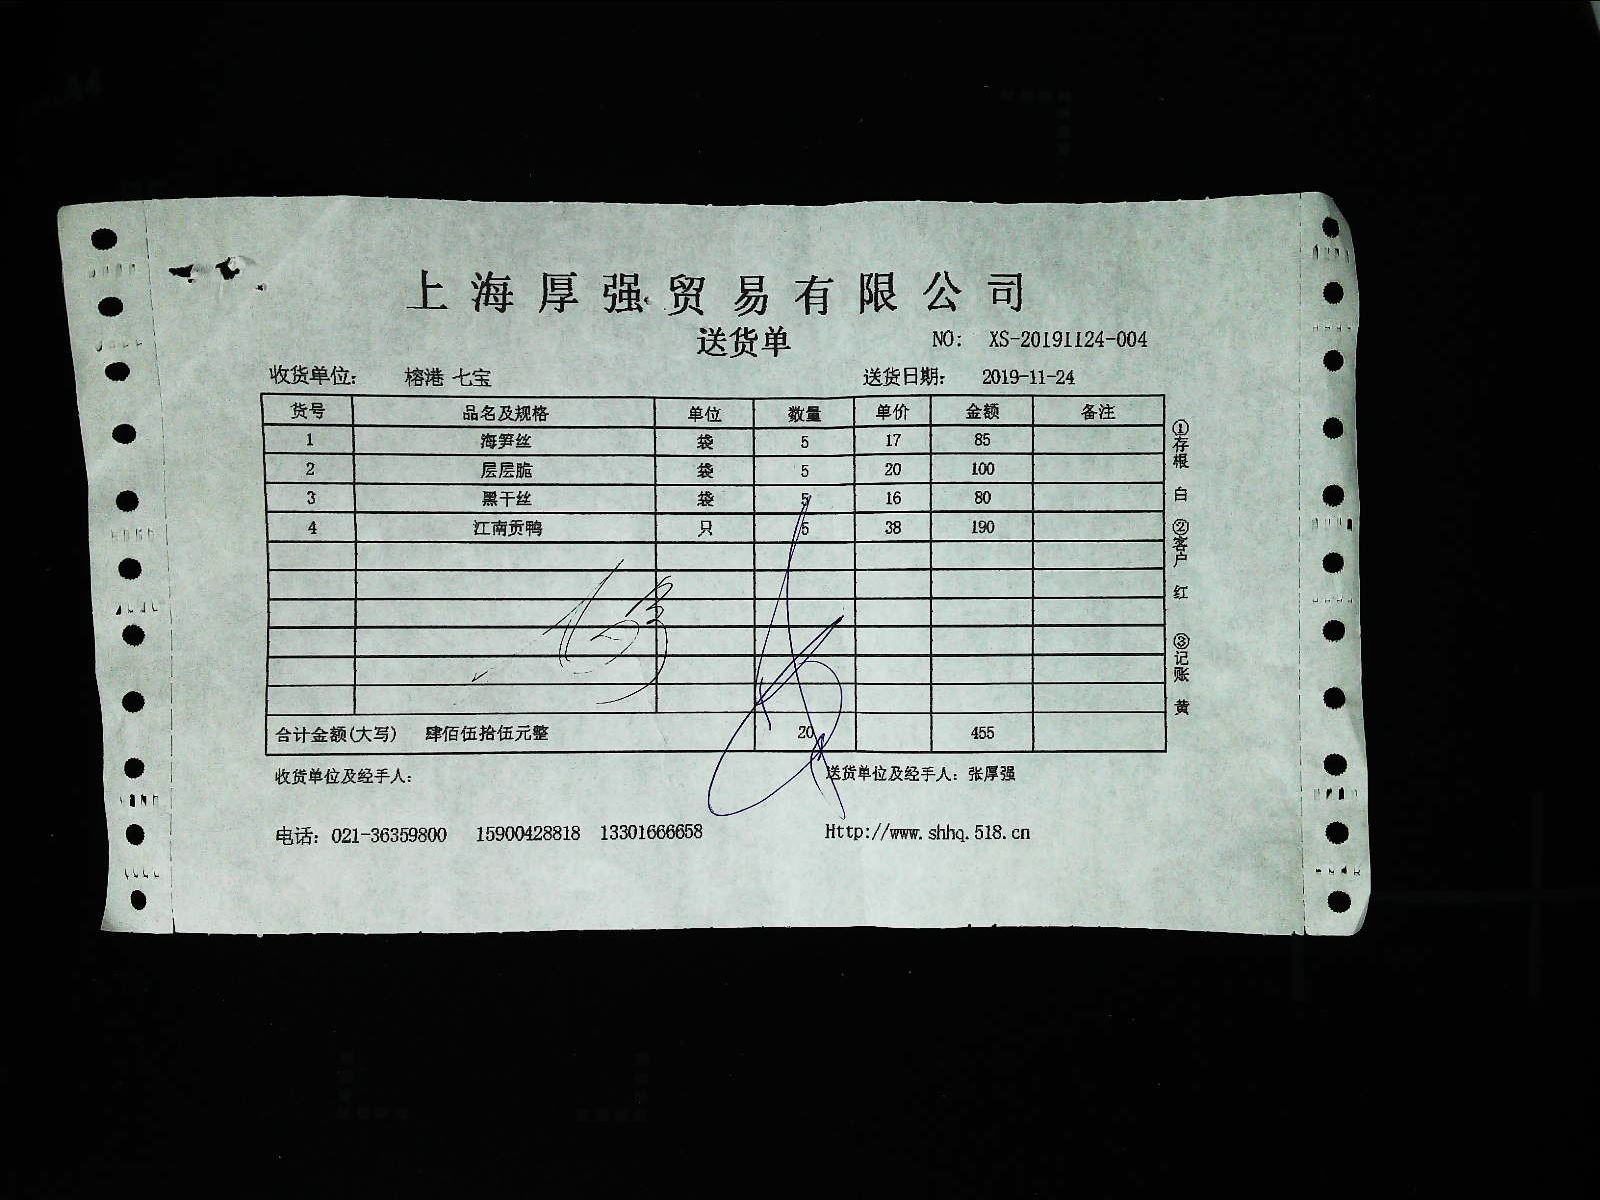 上海厚强贸易有限公司
送货单 NO: XS-20191124-004
收货单位: 榕港 七宝 送货日期: 2019-11-24
货号 品名及规格 单位 数量 单价 金额 备注
1 海笋丝 袋 5 17 85
2 层层脆 袋 5 20 100
3 黑干丝 袋 5 16 80
4 江南贡鸭 只 5 38 190
合计金额(大写) 肆佰伍拾伍元整 20 455
收货单位及经手人: 送货单位及经手人: 张厚强
电话: 021-36359800 15900428818 13301666658 Http://www.shhq.518.cn
①存根 白 ②客户 红 ③记账 黄